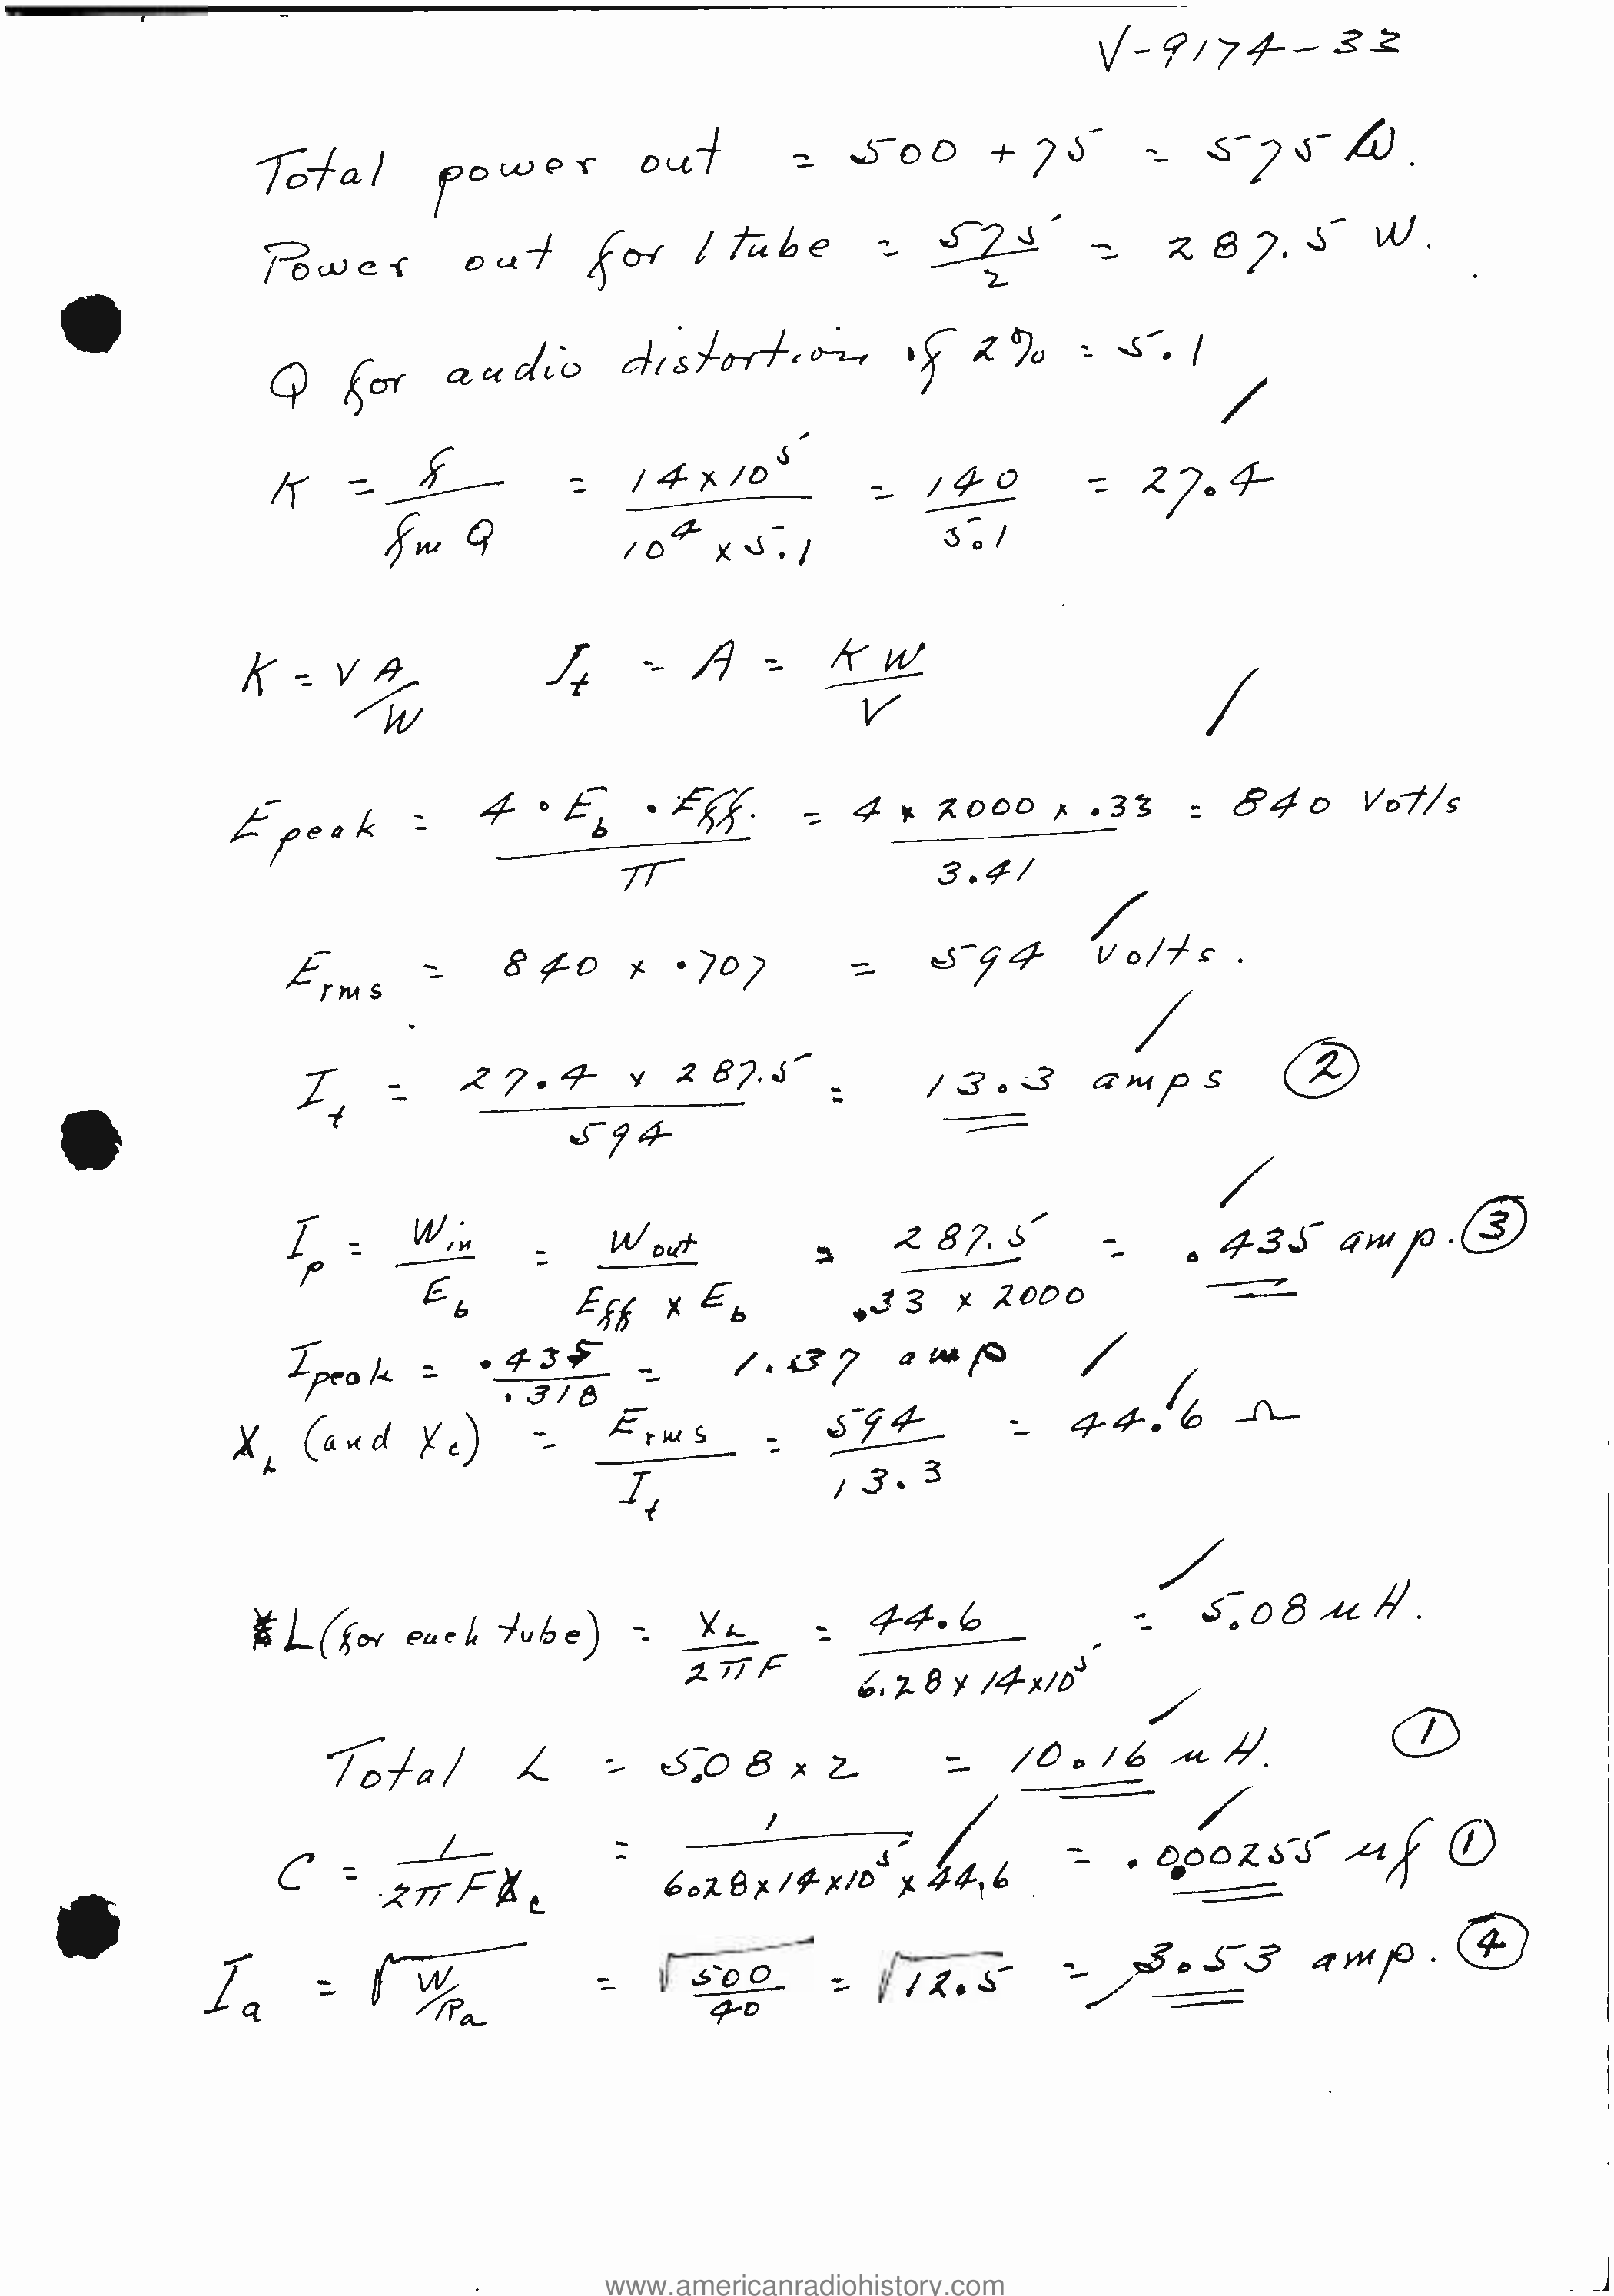 V-9174-33
Total power out = 500 + 75 = 575 W.
Power out for 1 tube = 575/2 = 287.5 W.
Q for audio distortion of 2% = 5.1
K = f/fm Q = 14x10⁵/10⁴ x 5.1 = 140/5.1 = 27.4
K = VA/W It = A = KW/V
E peak = 4 · Eb · Eff./π = 4 x 2000 x .33/3.41 = 840 Votls
Erms = 840 x .707 = 594 volts.
It = 27.4 x 287.5/594 = 13.3 amps ②
Ip = Win/Eb = Wout/Eff x Eb = 287.5/.33 x 2000 = .435 amp. ③
Ipeak = .435/.318 = 1.37 amp
XL (and Xc) = Erms/It = 594/13.3 = 44.6 Ω
L (for each tube) = XL/2πF = 44.6/6.28 x 14x10⁵ = 5.08 uH.
Total L = 5.08 x 2 = 10.16 uH. ①
C = 1/2πFXc = 1/6.28x14x10⁵x44.6 = .000255 uf ①
Ia = √W/Ra = √500/40 = √12.5 = 3.53 amp. ④
www.americanradiohistory.com